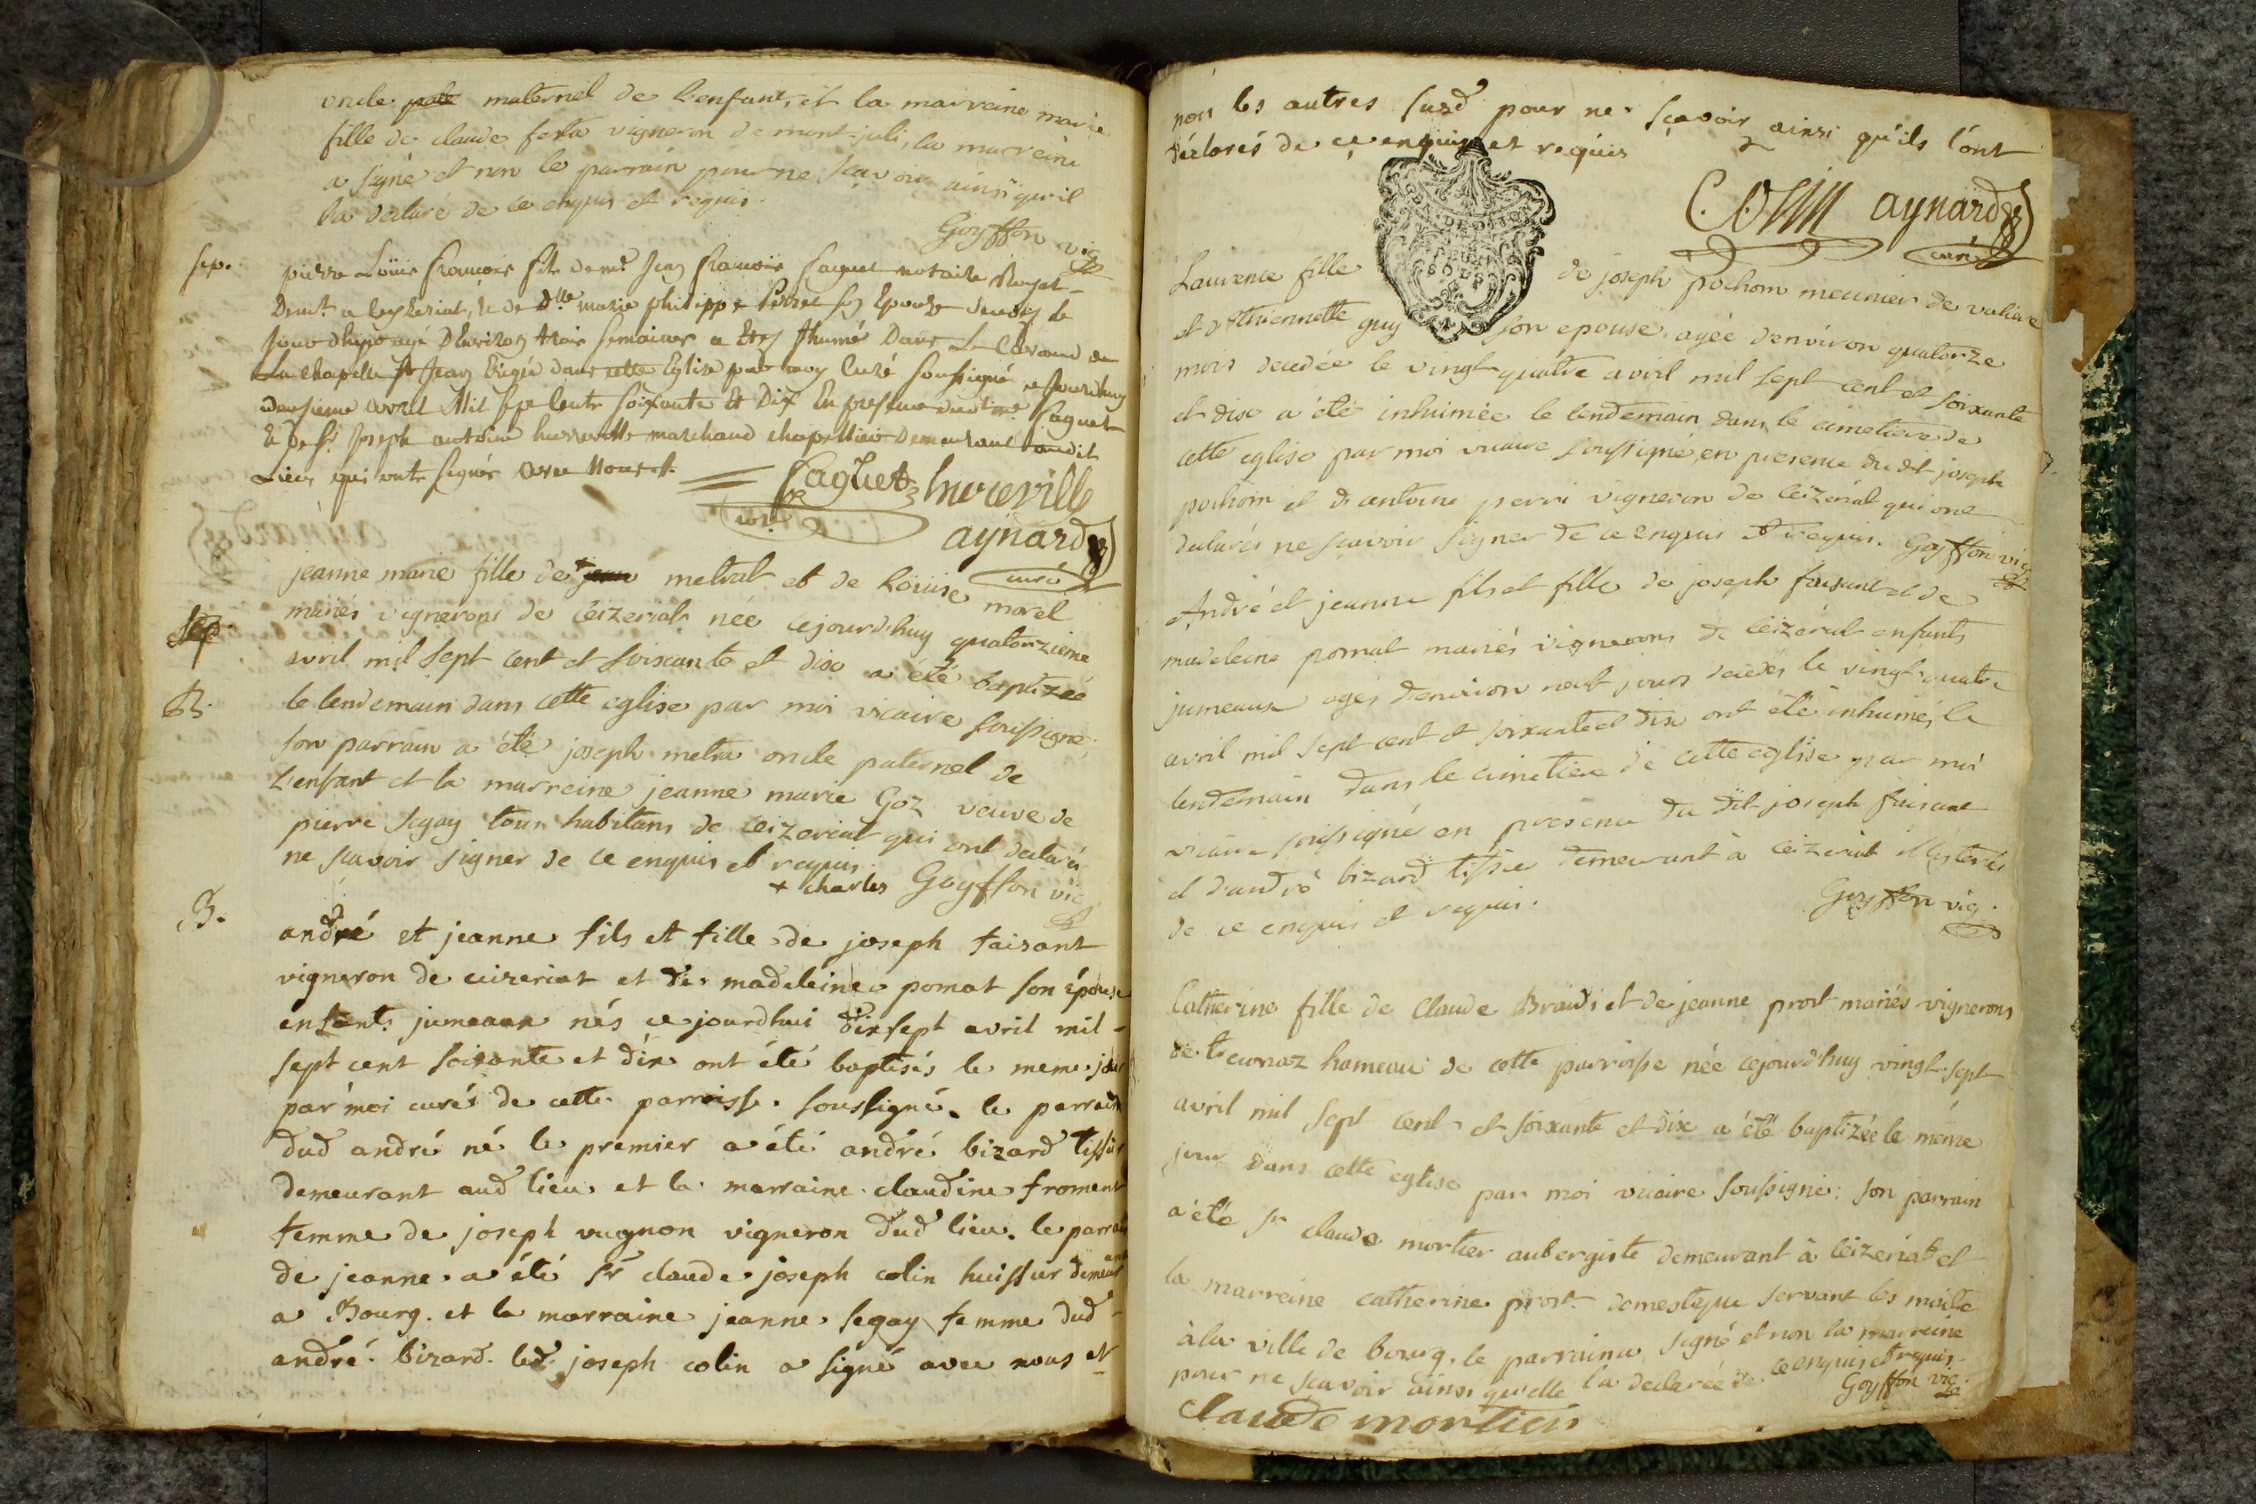 oncle pate maternel de l'enfant, et la marreine marie
fille de claude festa vigneron de mont-juli, la marreine
a signé et non le parrain pour ne sçavoir ainsi qu'il
l'a declaré de ce enquis et requis.
Goyffon vic
sep.
pierre Loüis François fils de me Jean François Faguet notaire Royal
Demt a ceyzeriat, & de Dlle marie philippe son Epouze decedé le
Jour d'hyer agé D'environ trois semaines a Eté Jnhumé Dans Le Caveau de
La chapelle St Jean Erigée dans cette Eglise par moy Curé soussigné cejourdhuy
deuxieme avril Mil sept Cents soixante Et Dix En presence dudt me Faguet
Et de Sr. Joseph antoine hureville marchand chapellier Demeurant audit
Lieu qui ont signés avec Nous.
Faguet hureville
aynard
curé
jeanne marie fille de + jean metral et de Loüise morel
mariés vignerons de Ceizeriat née cejourd'huy quatorzieme
Sep
avril mil sept cent et soixante et dix a été baptizée
B.
le lendemain dans cette eglise par moi vicaire soussigné;
son parrain a été joseph metra oncle paternel de
L'enfant et la marreine jeanne marie Goz veuve de
pierre segay tous habitans de Ceizeriat qui ont declarés
ne sçavoir signer de ce enquis et requis.
+ charles Goyffon vic
B.
andré et jeanne fils et fille de joseph faisant
vigneron de ceizeriat et de madeleine pomat son épouse
enfants jumeaux nés cejourdhui dix sept avril mil
sept cent soixante et dix ont été baptisés le meme jour
par moi curé de cette parroisse soussigné. le parrain
dud andré né le premier a été andré bizard tissier
demeurant aud lieu et la marraine claudine froment
femme de joseph vugnon vigneron dud lieu. le parrain
de jeanne a été sr claude joseph colin huissier demeurant
a Bourg. et la marraine jeanne segay femme dud
andré bizard. led joseph colin a signé avec nous et
non les autres susd pour ne sçavoir ainsi qu'ils l'ont
déclarés de ce enquis et requis
Colin aynard
curé
DEUX
SOLS
Laurence fille de joseph pochom meunier de valiere
et d'Etiennette guy son epouse agée d'environ quatorze
mois decedée le vingt-quatre avril mil sept cent et soixante
et dix a été inhumée le lendemain dans le cimetiere de
cette eglise par moi vicaire soussigné, en presence du dit joseph
pochom et d'antoine perri vigneron de Ceizeriat qui ont
declarés ne sçavoir signer de ce enquis et requis. Goyffon vic
André et jeanne fils et fille de joseph faisant et de
madeleine pomat mariés vignerons de Ceizeriat enfants
jumeaux agés d'environ neuf jours decedés le vingt-quatre
avril mil sept cent et soixante et dix ont été inhumés le
lendemain dans le cimetiere de cette eglise par moi
vicaire soussigné en presence du dit joseph faisant
et d'andré bizard tissier demeurant à Ceizeriat illiterés
de ce enquis et requis.
Goyffon vic.
Catherine fille de Claude Braidi et de jeanne prost mariés vignerons
de teconaz hameau de cette parroisse née cejourd'huy vingt-sept
avril mil sept cent et soixante et dix a été baptizée le même
jour dans cette eglise par moi vicaire soussigné; son parrain
a été sr claude mortier aubergiste demeurant à Ceizeriat et
la marreine catherine prost domestique servant les
à la ville de bourg. le parrain a signé et non la marreine
pour ne sçavoir ainsi qu'elle l'a declarée de ce enquis et requis.
Goyffon vic
claude mortier